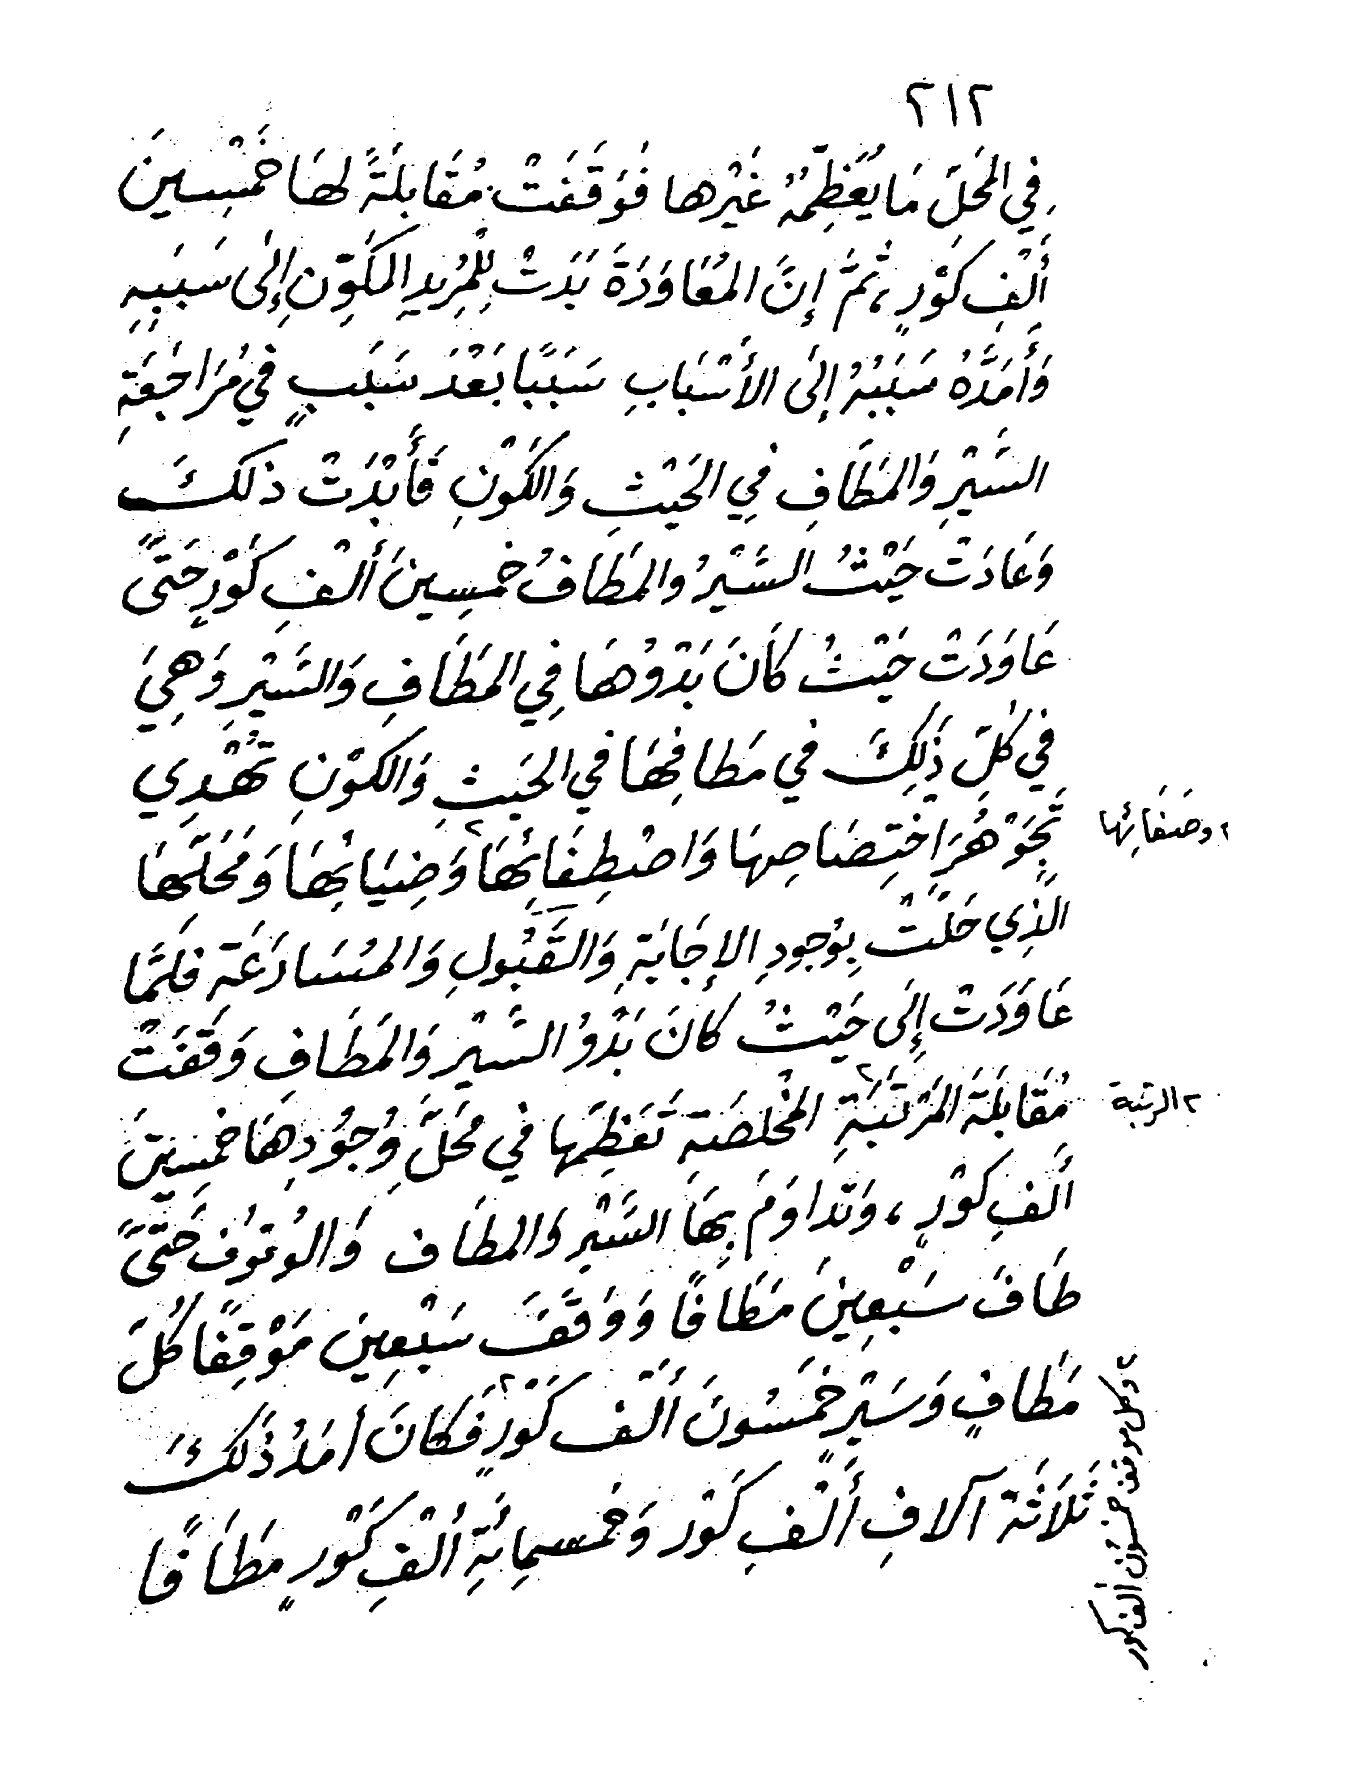 ٢١٢
فِي المَحَلِّ مَا يُعَظِّمُهُ غَيْرها فَوَقَفَتْ مُقَابِلَةً لهَا خَمْسِينَ
أَلْفِ كَوْرٍ، ثُمَّ إِنَّ المُعَاوَدَةَ بَدَتْ لِلْمُرِيدِ المُكَوِّنِ إِلَى سَبَبِهِ
وَأَمَدَّهُ سَبَبُهُ إِلَى الأَسْبَابِ سَبَبًا بَعْدَ سَبَبٍ فِي مُرَاجَعَةِ
السَّيْرِ وَالمَطَافِ فِي الحَيْثِ وَالكَوْنِ فَأَبْدَتْ ذلكَ
وَعَادَتْ حَيْثُ السَّيْرُ والمَطَافُ خَمسِينَ أَلْفِ كَوْرٍ حَتَّى
عَاوَدَتْ حَيْثُ كَانَ بَدْوُهَا فِي المَطَافِ وَالسَّيْرِ وَهِيَ
فِي كُلِّ ذَلِكَ فِي مَطَافِهَا فِي الحَيثِ وَالكَوْنِ تَهْدِي
بِجَوْهَرِ اخْتِصَاصِهَا وَاصْطِفَائِهَا٢ وَضِيَائِهَا وَمَحَلِّهَا
الَّذِي حَلَّتْ بِوُجودِ الإِجَابَةِ وَالقَبُولِ وَالمُسَارَعَةِ فَلَمَّا
عَاوَدَتْ إِلَى حَيْثُ كَانَ بَدْوُ السَّيْرِ وَالمَطَافِ وَقَفَتْ
مُقَابِلَةَ المَرْتَبَةِ٢ المُخْلصَةِ تَعَظِّمُها فِي مَحَلِّ وُجُودِهَا خَمسِينَ
أَلفِ كَوْرٍ، وَتَدَاوَمَ بِهَا السَّيْرُ وَالمَطَاف وَالوُقوُف حَتَّى
طَافَ سَبْعِينَ مَطَافًا وَوَقَفَ سَبْعِينَ مَوْقِفًا كُلّ
مَطَافٍ وَسَيْرٍ خَمسُونَ أَلْف كَوْرٍ٢ فَكَانَ أَمَدُ ذَلكَ
ثَلَاثَة آلافِ أَلْفِ كَوْر وَخمسمِائَةِ أَلْفِ كَوْرٍ مَطَافًا
٢ وصَفَائِها
٢ الرتبة
٢ وكل موقف خمسون ألف كور